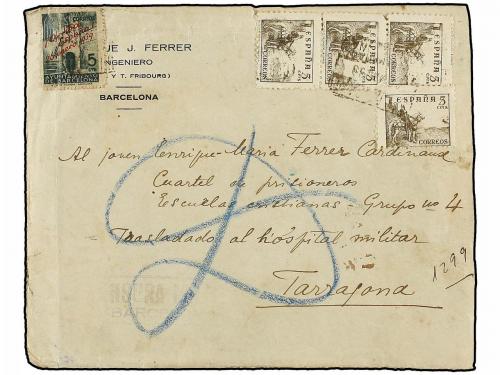 UE J. FERRER
NGENIERO
Y T. FRIBOURG)
BARCELONA
5
BARCELONA
ESPAÑA
5
CTS
CORREOS
ESPAÑA
5
CTS
CORREOS
ESPAÑA
5
CTS
CORREOS
ESPAÑA
5
CTS
CORREOS
Al joven Enrique-Maria Ferrer
Cuartel de prisioneros
Escuelas cristianas - Grupo nº 4
Trasladado al hospital militar
Tarragona
1299